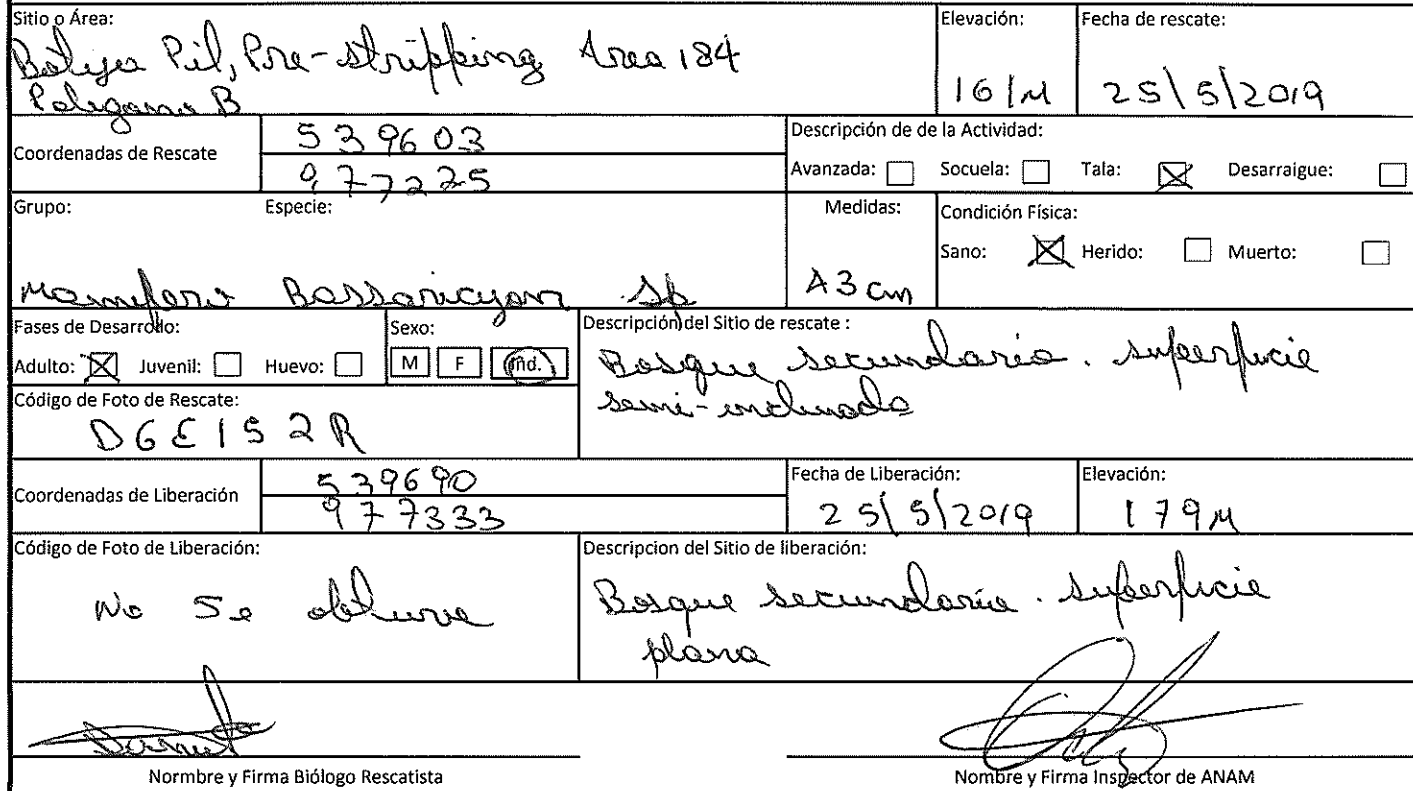 Sitio o Área:
Botija Pit, Pre-stripping Area 184
Poligono B
Elevación:
161M
Fecha de rescate:
25/5/2019
Coordenadas de Rescate
539603
977225
Descripción de de la Actividad:
Avanzada: Socuela: Tala: Desarraigue:
Grupo: Especie:
Mamifero Bassaricyon sp
Medidas:
43 cm
Condición Física:
Sano: Herido: Muerto:
Fases de Desarrollo:
Adulto: Juvenil: Huevo:
Sexo:
M F Ind.
Descripción del Sitio de rescate :
Bosque secundario. superficie
semi-inclinada
Código de Foto de Rescate:
DGE152R
Coordenadas de Liberación
539690
977333
Fecha de Liberación:
25/5/2019
Elevación:
179M
Código de Foto de Liberación:
No se obtuvo
Descripcion del Sitio de liberación:
Bosque secundario. superficie
plana
Normbre y Firma Biólogo Rescatista
Nombre y Firma Inspector de ANAM